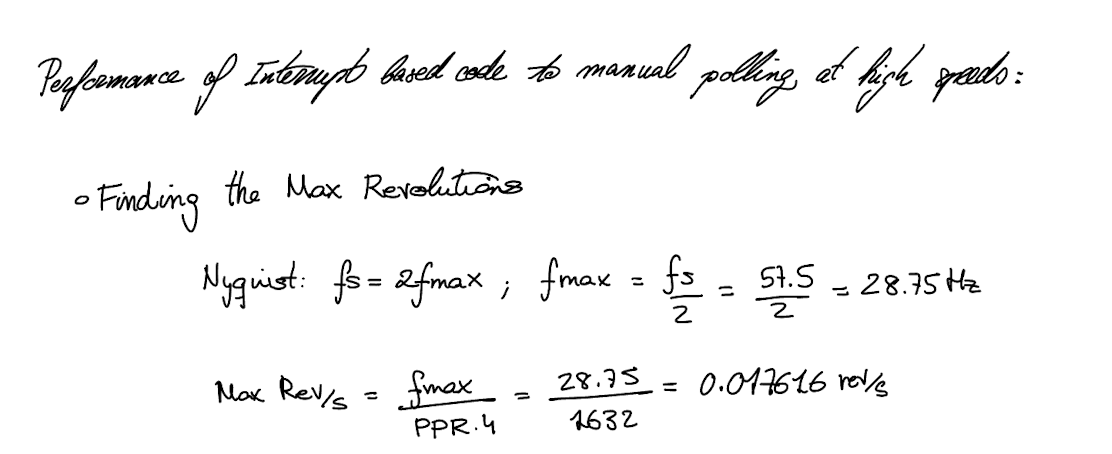 Performance of Interrupt based code to manual polling, at high speeds:
∘ Finding the Max Revolutions
Nyquist: fs = 2fmax ; fmax = fs/2 = 57.5/2 = 28.75 Hz
Max Rev/s = fmax/PPR.4 = 28.75/1632 = 0.017616 rev/s